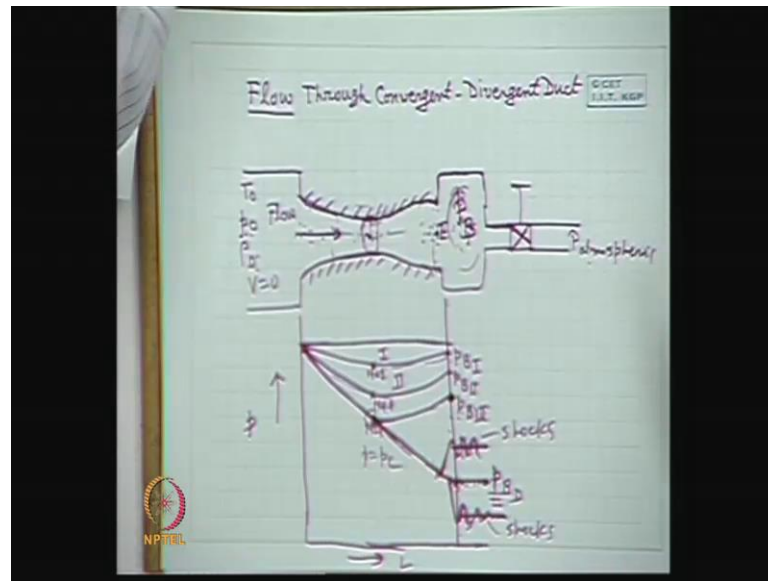 Flow Through Convergent-Divergent Duct
I.I.T. KGP
T0
p0
Flow
V=0
E
B
Patmospheric
I
PBI
M<1
II
PBII
M<1
PBIII
p
p=pc
shocks
PBD
shocks
L
NPTEL